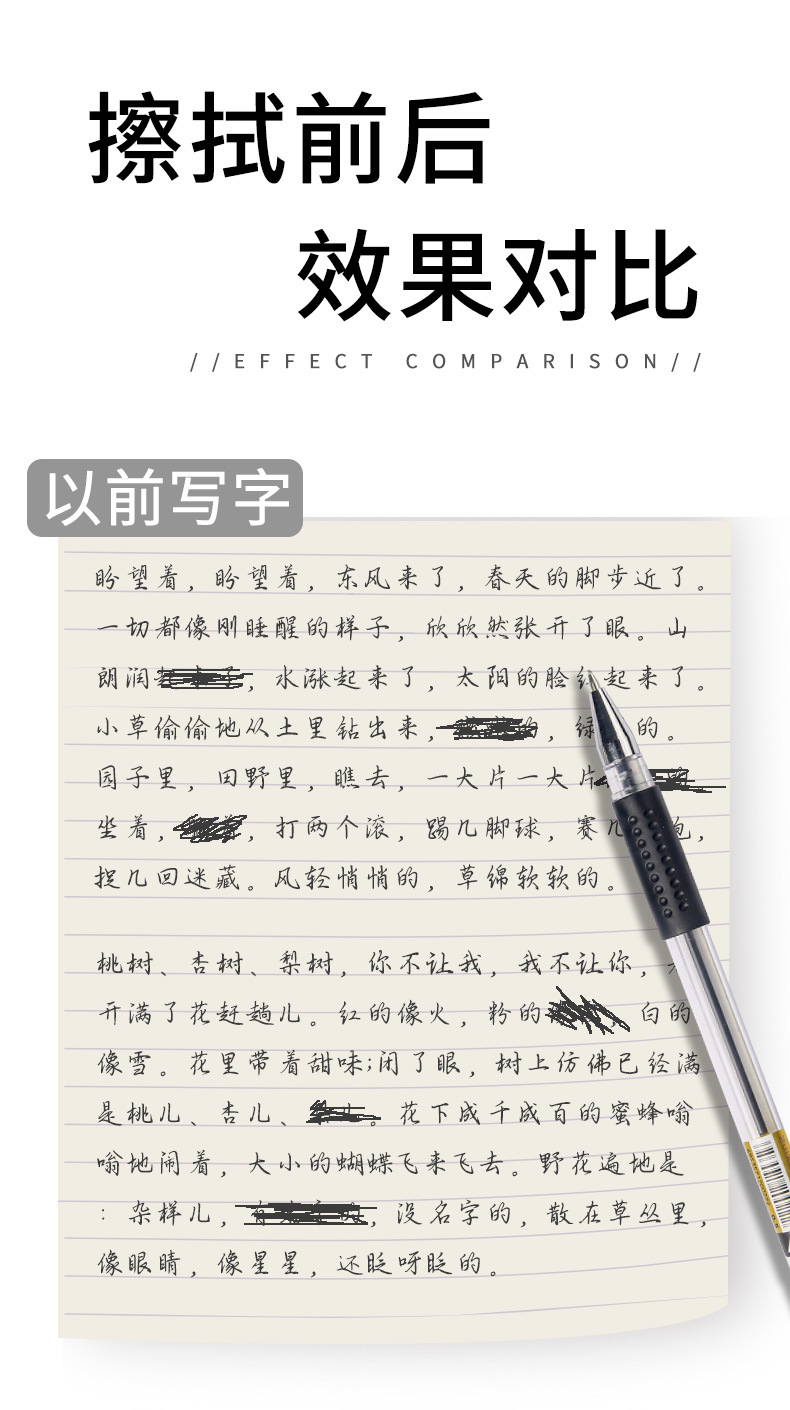 擦拭前后
效果对比
//EFFECT COMPARISON//
以前写字
盼望着，盼望着，东风来了，春天的脚步近了。
一切都像刚睡醒的样子，欣欣然张开了眼。山
朗润，水涨起来了，太阳的脸红起来了。
小草偷偷地从土里钻出来，，绿的。
园子里，田野里，瞧去，一大片一大片
坐着，，打两个滚，踢几脚球，赛几跑，
捉几回迷藏。风轻悄悄的，草绵软软的。
桃树、杏树、梨树，你不让我，我不让你，
开满了花赶趟儿。红的像火，粉的白的
像雪。花里带着甜味;闭了眼，树上仿佛已经满
是桃儿、杏儿、。花下成千成百的蜜蜂嗡
嗡地闹着，大小的蝴蝶飞来飞去。野花遍地是
：杂样儿，，没名字的，散在草丛里，
像眼睛，像星星，还眨呀眨的。